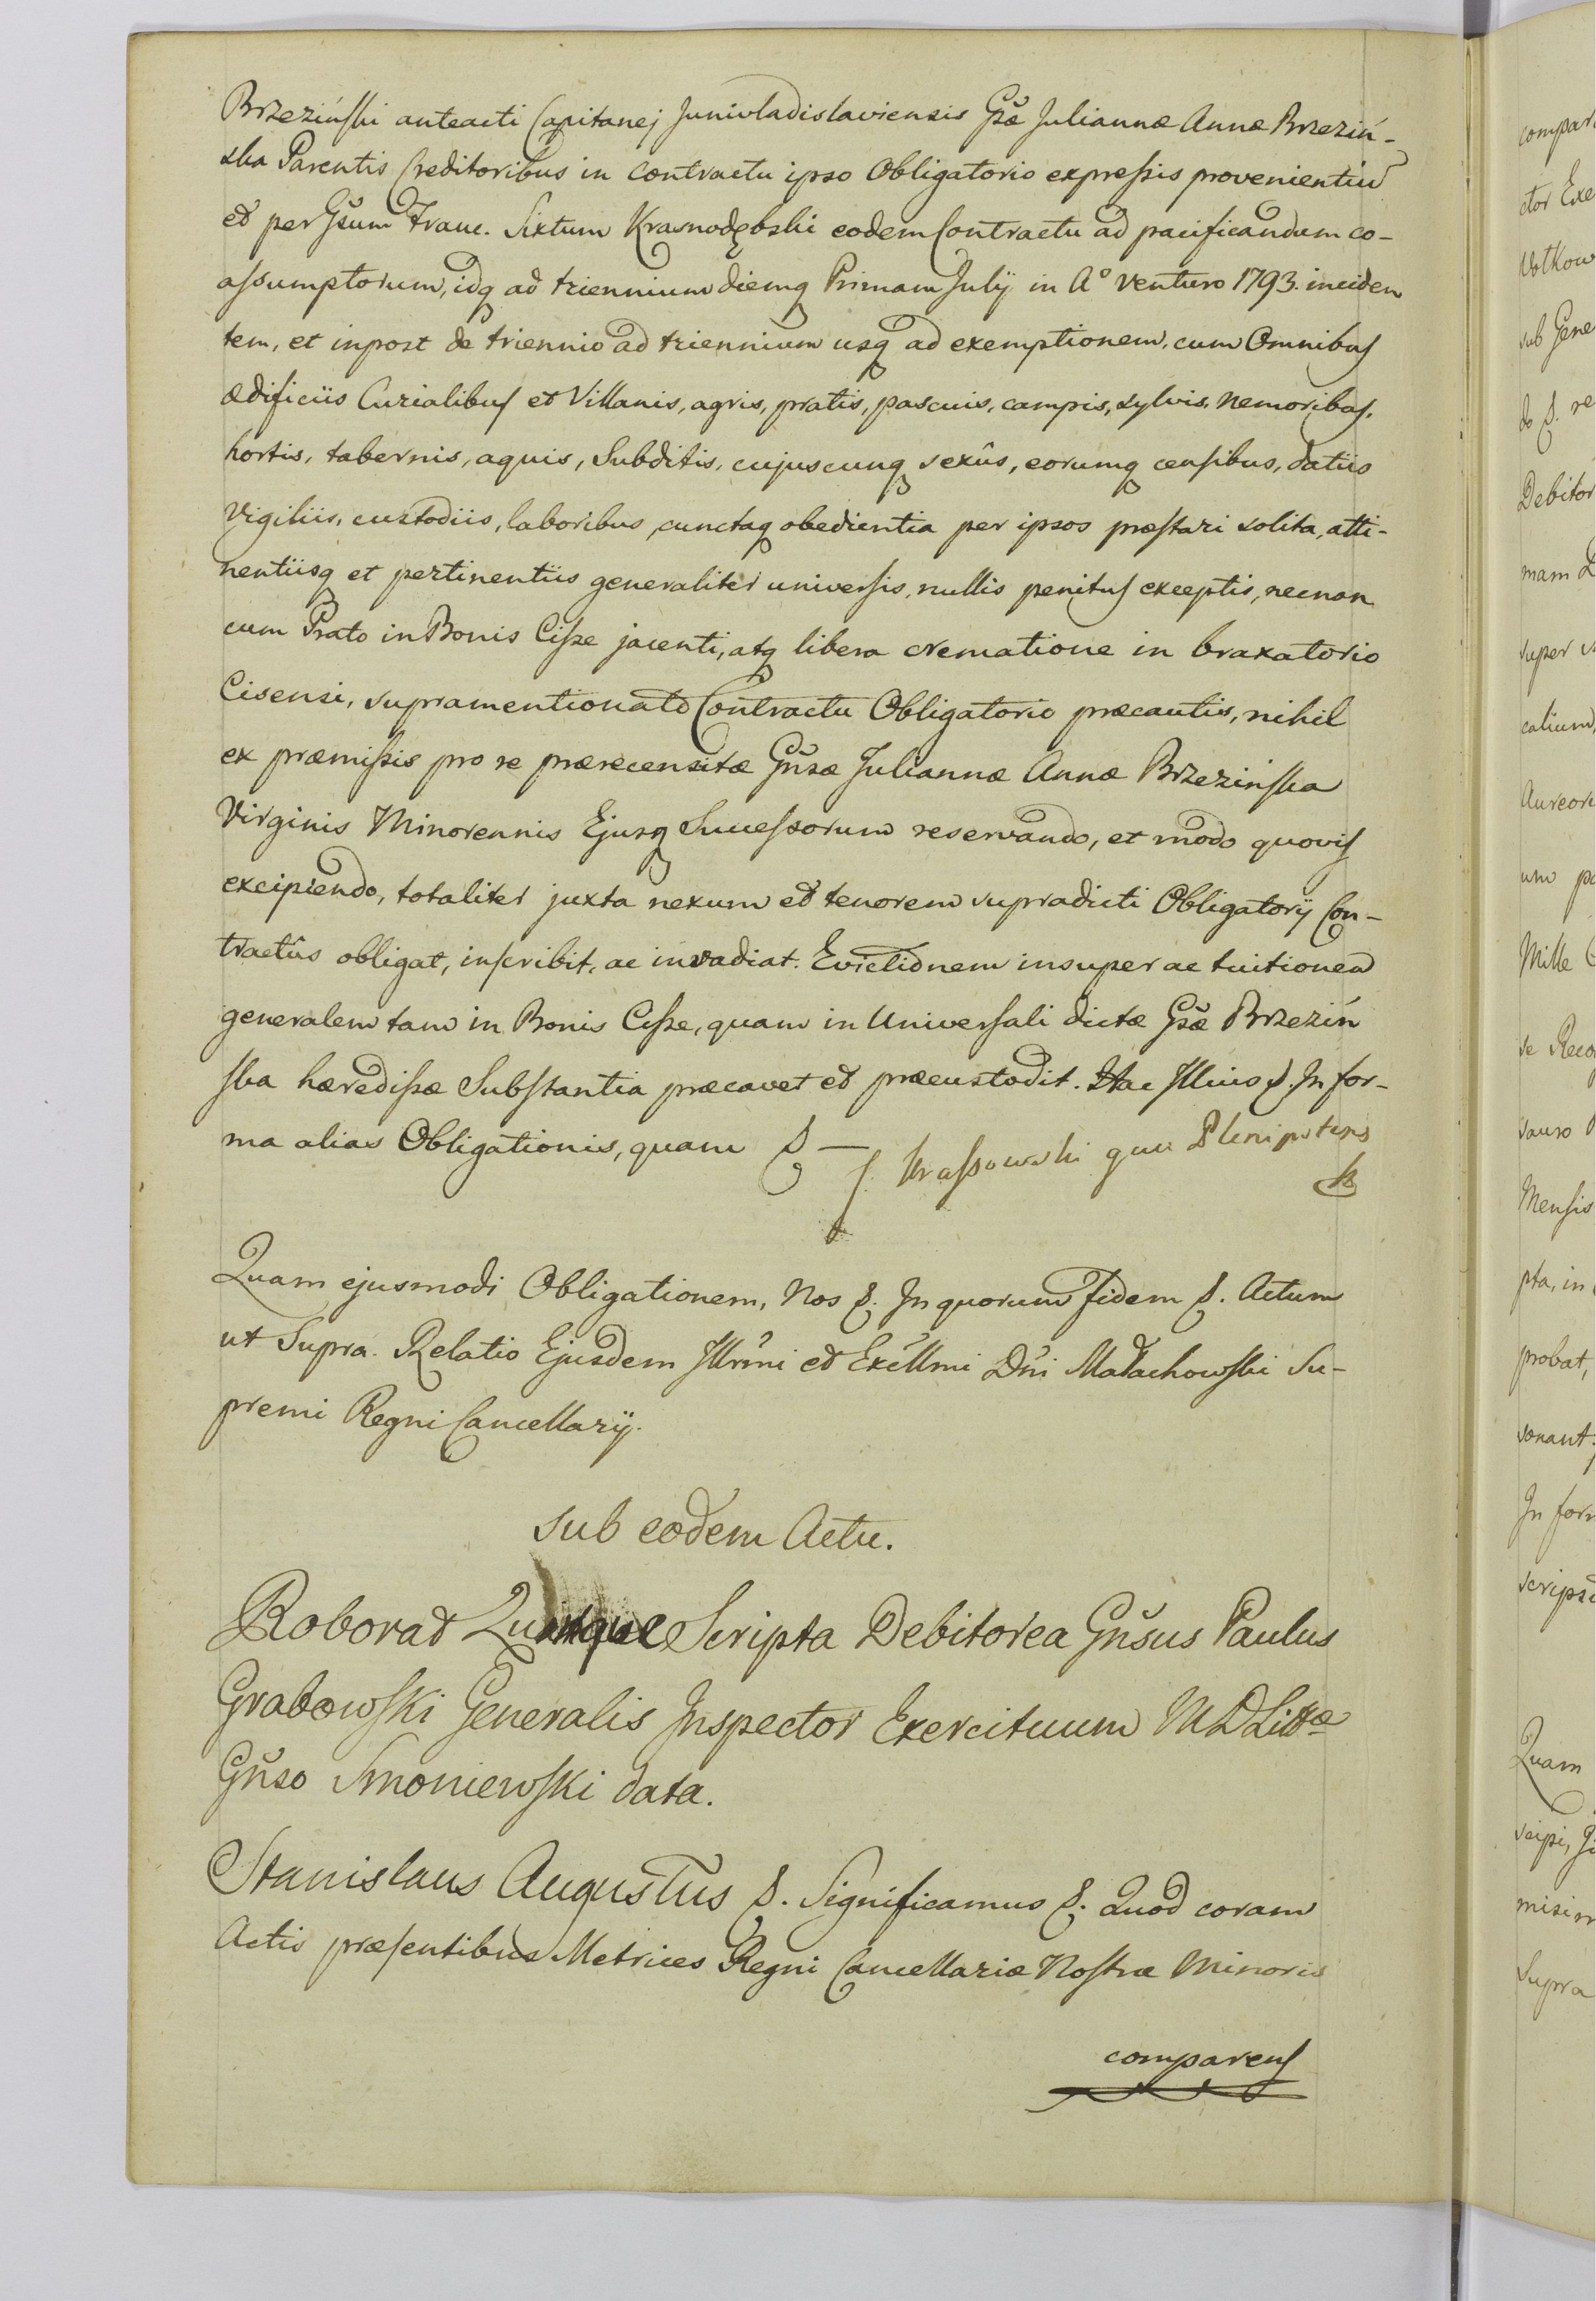 Brzezińſki anteacti Capitanej Junivladislaviensis Gsæ Juliannæ Annæ Brzeziń-
ska Parentis Creditoribus in Contractu ipso Obligatorio expreſsis provenientiũ
et per Gsum Franc. Sixtum Krasnodębski eodem Contractu ad pacificandum co-
aſsumptorum, idq ad triennium diemq Primam Julij in A° venturo 1793. inciden
tem, et inpost de triennio ad triennium usq ad exemptionem, cum Omnibuſ
Ædificiis Curialibuſ et Villanis, agris, pratis, pascuis, campis, sylvis, nemoribuſ,
hortis, tabernis, aquis, Subditis, cujuscunq sexûs, eorumq cenſibus, datiis
vigiliis, custodiis, laboribus, cunctaq obedientia per ipsos præſtari solita, atti-
nentiisq et pertinentiis generaliter univerſis, nullis penituſ exceptis, necnon
cum Prato in Bonis Ciſze jacenti, atq libera crematione in braxatorio
Cisensi, supramentionato Contractu Obligatorio præcautis, nihil
ex præmiſsis pro se præcensitæ Gñsæ Juliannæ Annæ Brzezińſka
Virginis Minorennis Ejusq Succeſsorum reservando, et modo quoviſ
excipiendo, totaliter juxta nexum et tenorem supradicti Obligatorij Con-
tractûs obligat, inſcribit, ac invadiat. Evictionem insuper ac tuitionem
generalem tam in Bonis Ciſze, quam in Univerſali dictæ Gsæ Brzeziń
ſka hærediſsæ Subſtantia præcavet et præcustodit. Hac Illius &. In for-
ma alias Obligationis, quam & — J. Kraſsowski qua Plenipotens
Quam ejusmodi Obligationem, Nos &. In quorum fidem &. Actum
ut Supra. Relatio Ejusdem Illrmi et Excllmi Dñi Małachowſki Su-
premi Regni Cancellarij.
Sub eodem Actu.
Roborat Quinque Scripta Debitorea Gñsus Paulus
Grabowſki Generalis Inspector Exercituum M D Littæ
Gñso Smoniewſki data.
Stanislaus Augustus &. Significamus &. Quod coram
Actis præſentibus Metrices Regni Cancellariæ Noſtræ Minoris
compareuſ